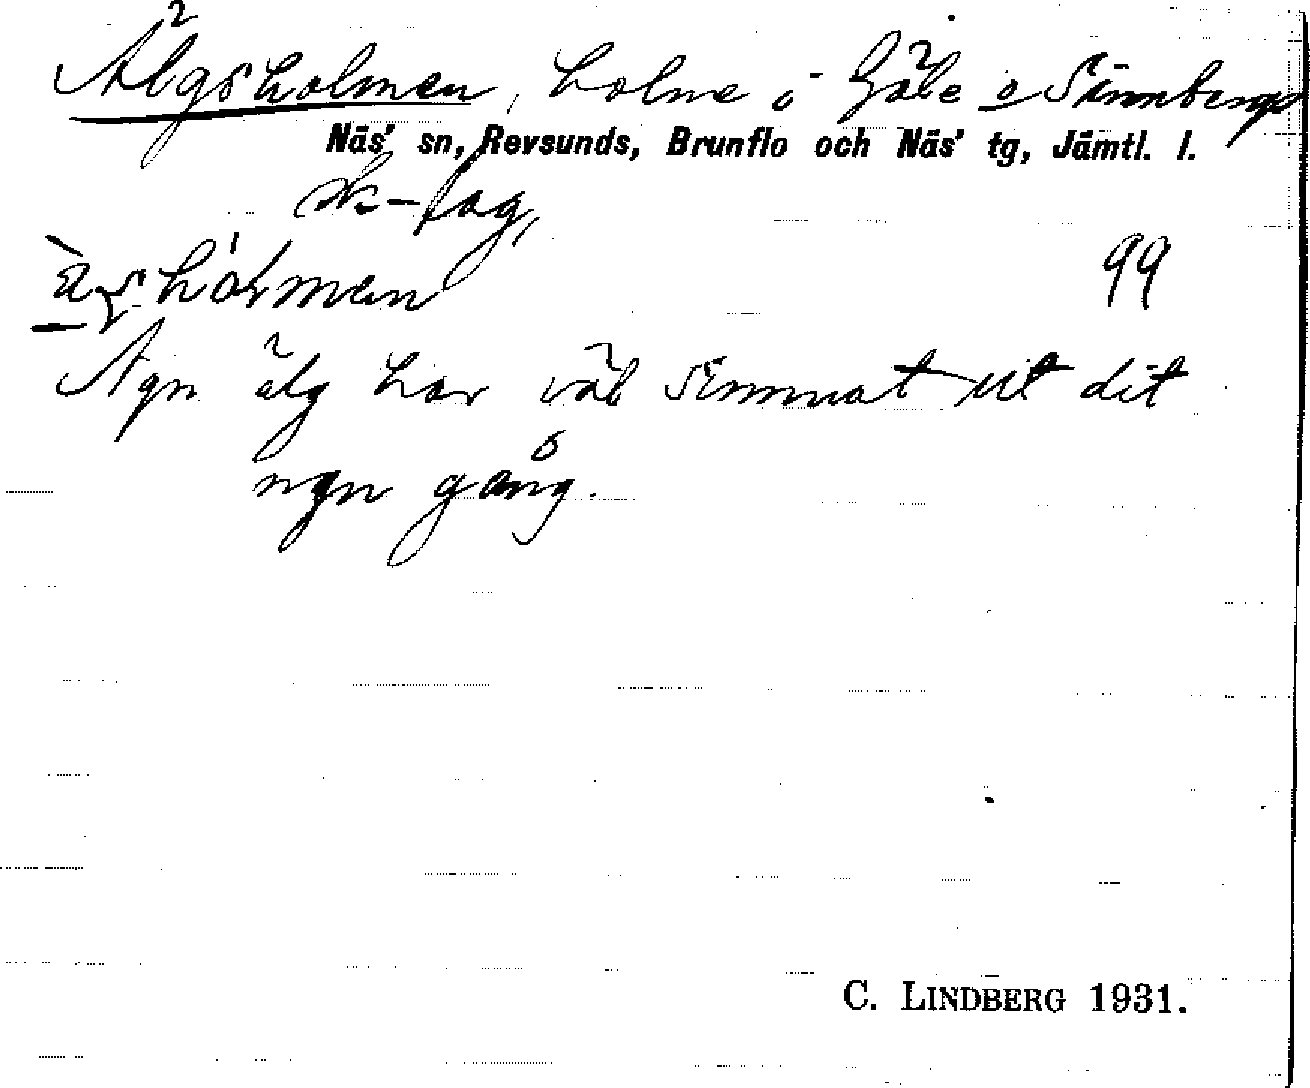 Älgsholmen, holme i Gåle o Sünnbergs
Näs' sn, Revsunds, Brunflo och Näs' tg, Jämtl. l.
sk-lag,
99
Ngn älg har väl simmat ut dit
ngn gång.
C. LINDBERG 1931.